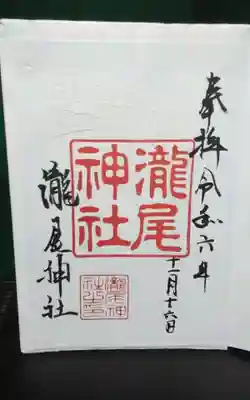 奉拝令和六年
十一月十六日
瀧尾
神社
瀧尾神社
瀧尾神
社之印